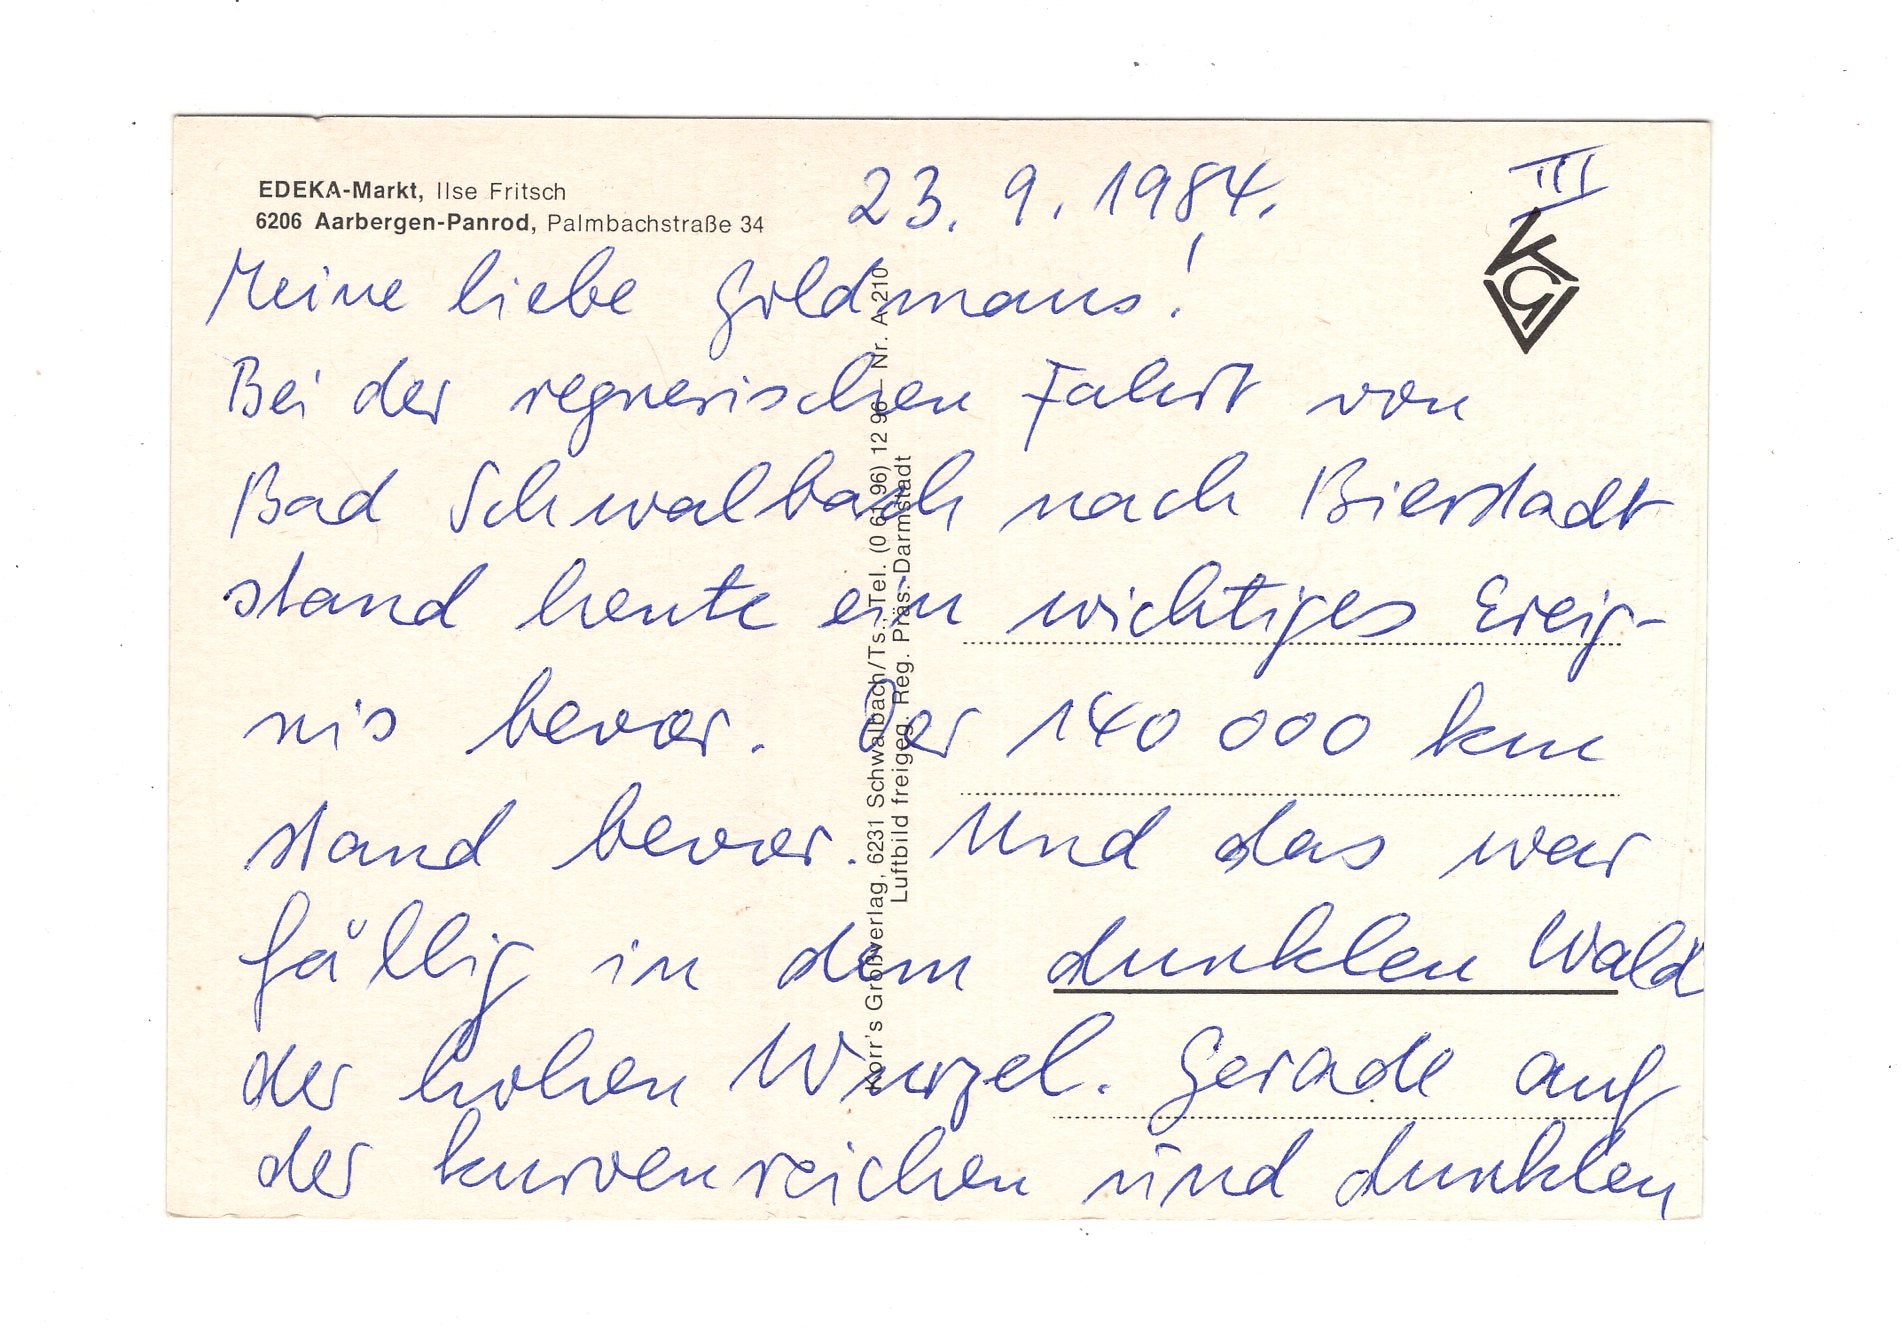 EDEKA-Markt, Ilse Fritsch
6206 Aarbergen-Panrod, Palmbachstraße 34
23. 9. 1984.
III
KG
Meine liebe Goldmaus!
Bei der regnerischen Fahrt von
Bad Schwalbach nach Bierstadt
stand heute ein wichtiges Ereig-
nis bevor. Der 140 000 km
stand bevor. Und das war
fällig in dem dunklen Wald
der hohen Wurzel. Gerade auf
der kurvenreichen und dunklen
Korr's Großverlag, 6231 Schwalbach/Ts., Tel. (0 61 96) 12 96 – Nr. A 210
Luftbild freigeg. Reg. Präs. Darmstadt